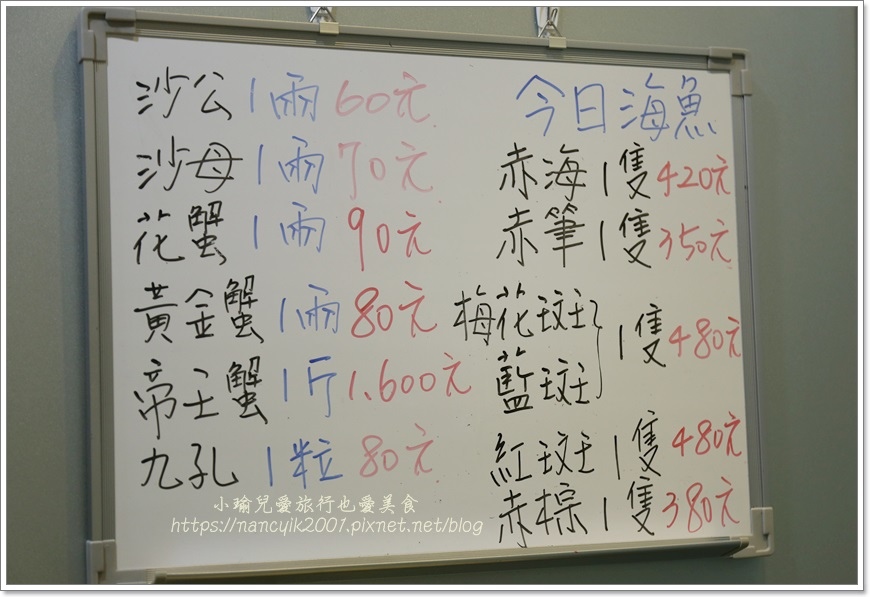 沙公1兩60元
沙母1兩70元
花蟹1兩90元
黃金蟹1兩80元
帝王蟹1斤1.600元
九孔1粒80元
今日海魚
赤海1隻420元
赤筆1隻350元
梅花斑
藍斑
1隻480元
紅斑1隻480元
赤棕1隻380元
小瑜兒愛旅行也愛美食
https://nancyik2001.pixnet.net/blog